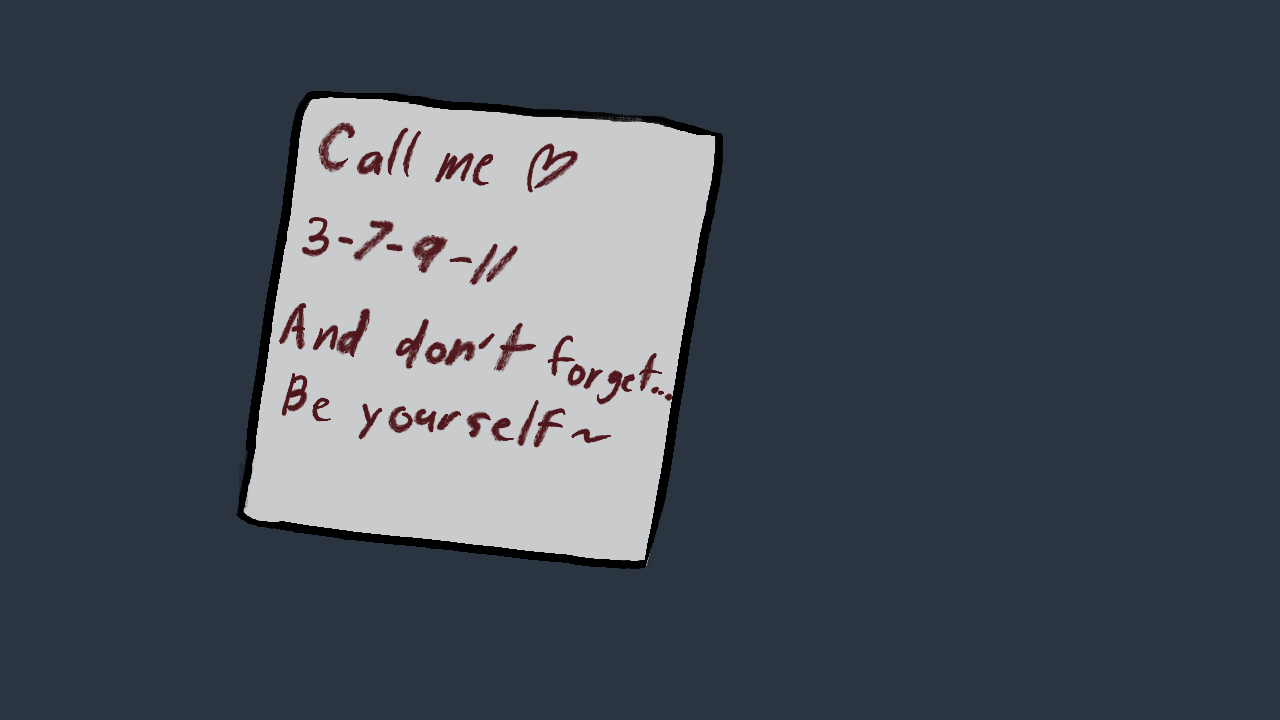 Call me ♡
3-7-9-11
And don't forget...
Be yourself~